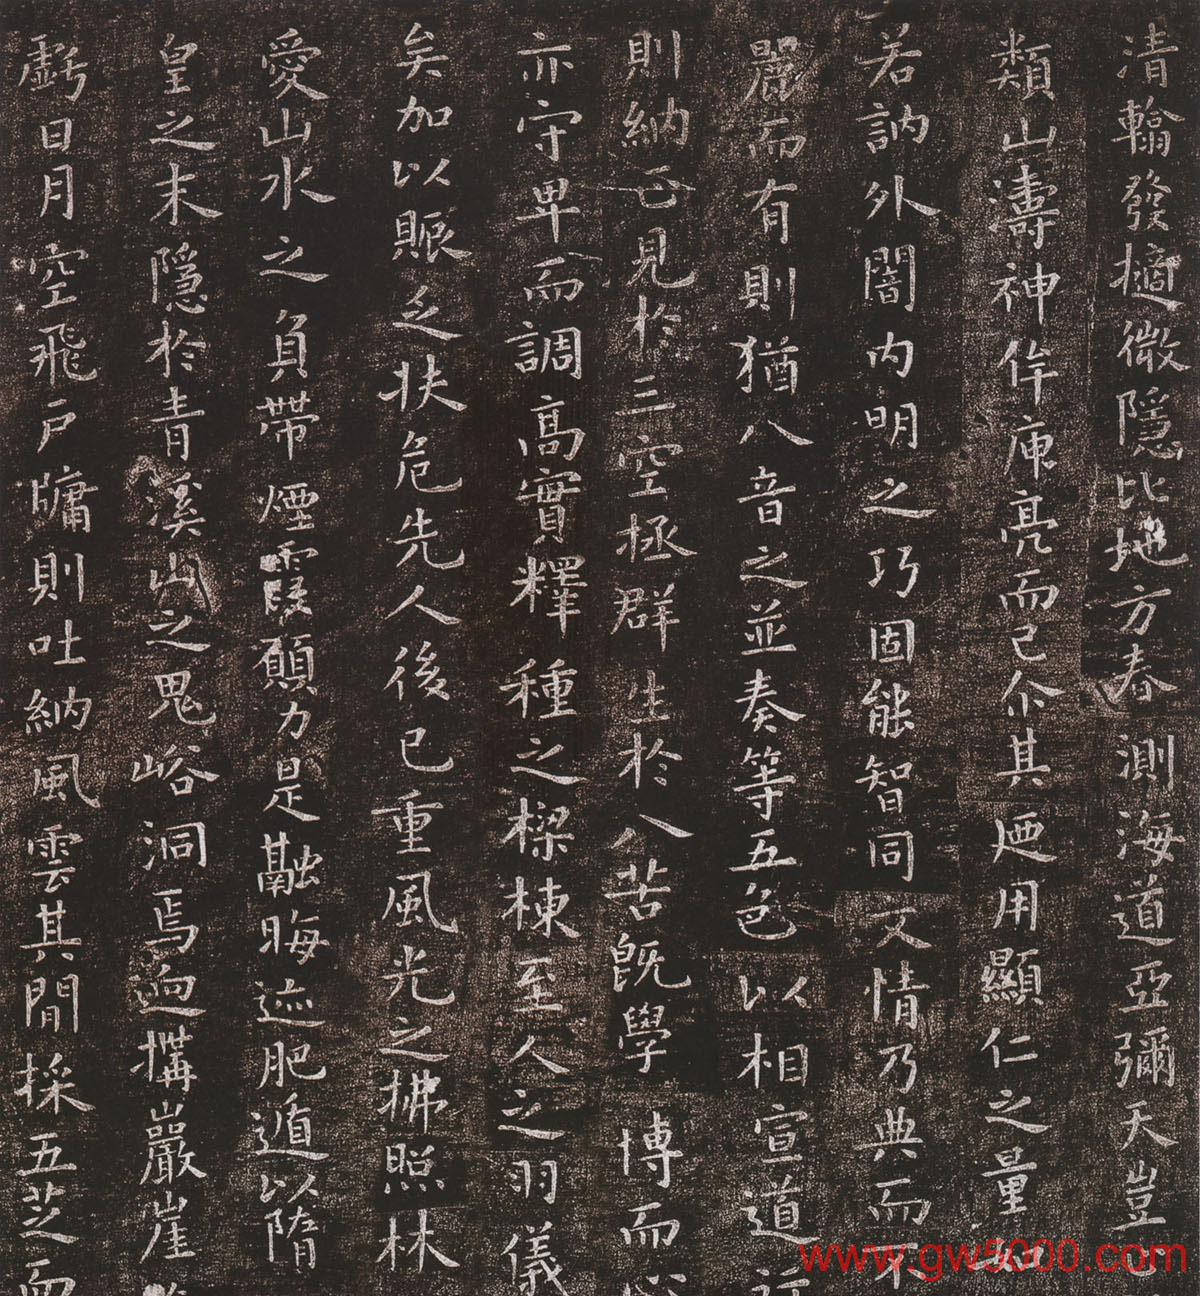 清翰發擿微隱比地方春測海道亞彌天豈
類山濤神侔庾亮而已尒其廼用顯仁之量
若訥外闇内明之巧固能智同文情乃典而不
麗而有則猶八音之並奏等五色以相宣道行
則納正見於三空拯群生於八苦旣學博而心
亦守卑而調髙實釋種之樑棟至人之羽儀
矣加以賑乏扶危先人後已重風光之拂照林
愛山水之負帶煙霞願力是融晦迹肥遁以隋
皇之末隱於青溪山之鬼峪洞焉廻搆巖崖
虧日月空飛戶牖則吐納風雲其間採五芝而
www.gw5000.com